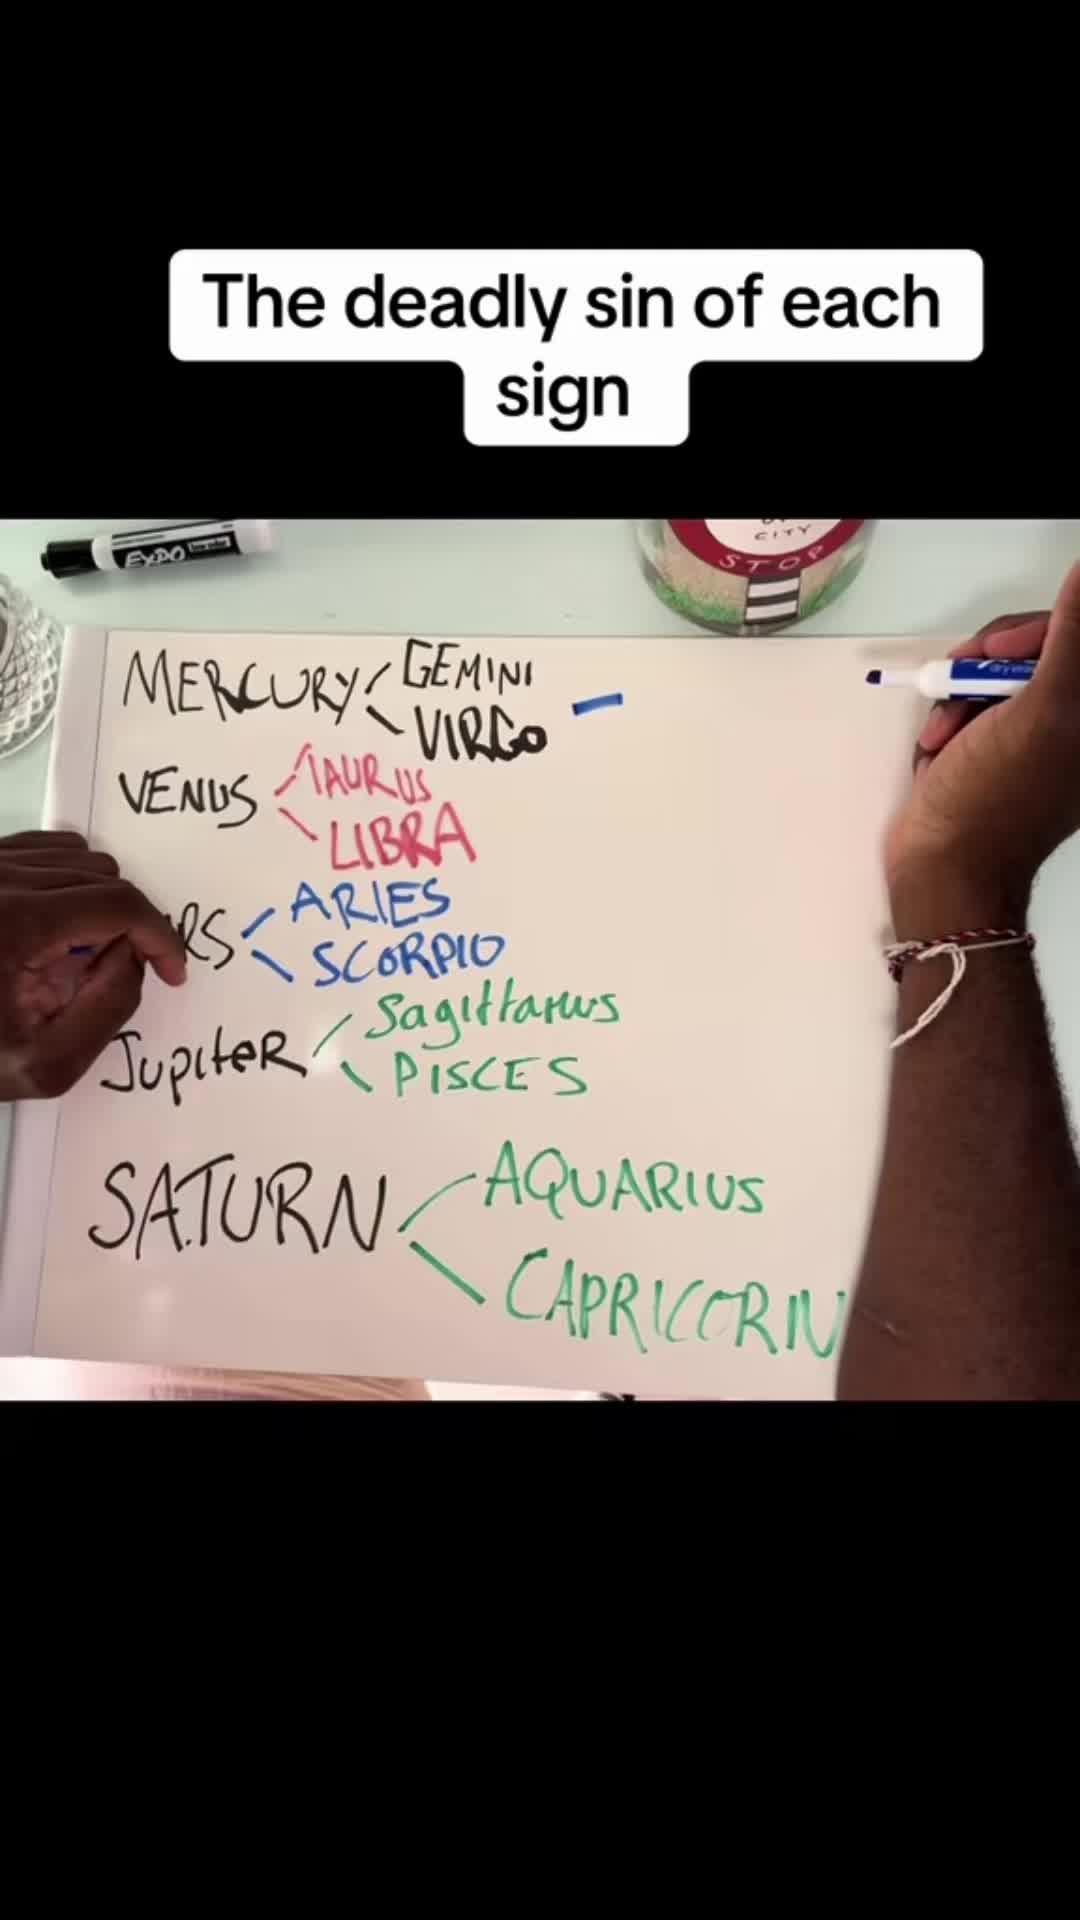 The deadly sin of each
sign
EXPO
CITY
STOP
MERCURY
GEMINI
VIRGO
VENUS
TAURUS
LIBRA
RS
ARIES
SCORPIO
Jupiter
Sagittarius
PISCES
SATURN
AQUARIUS
CAPRICORN